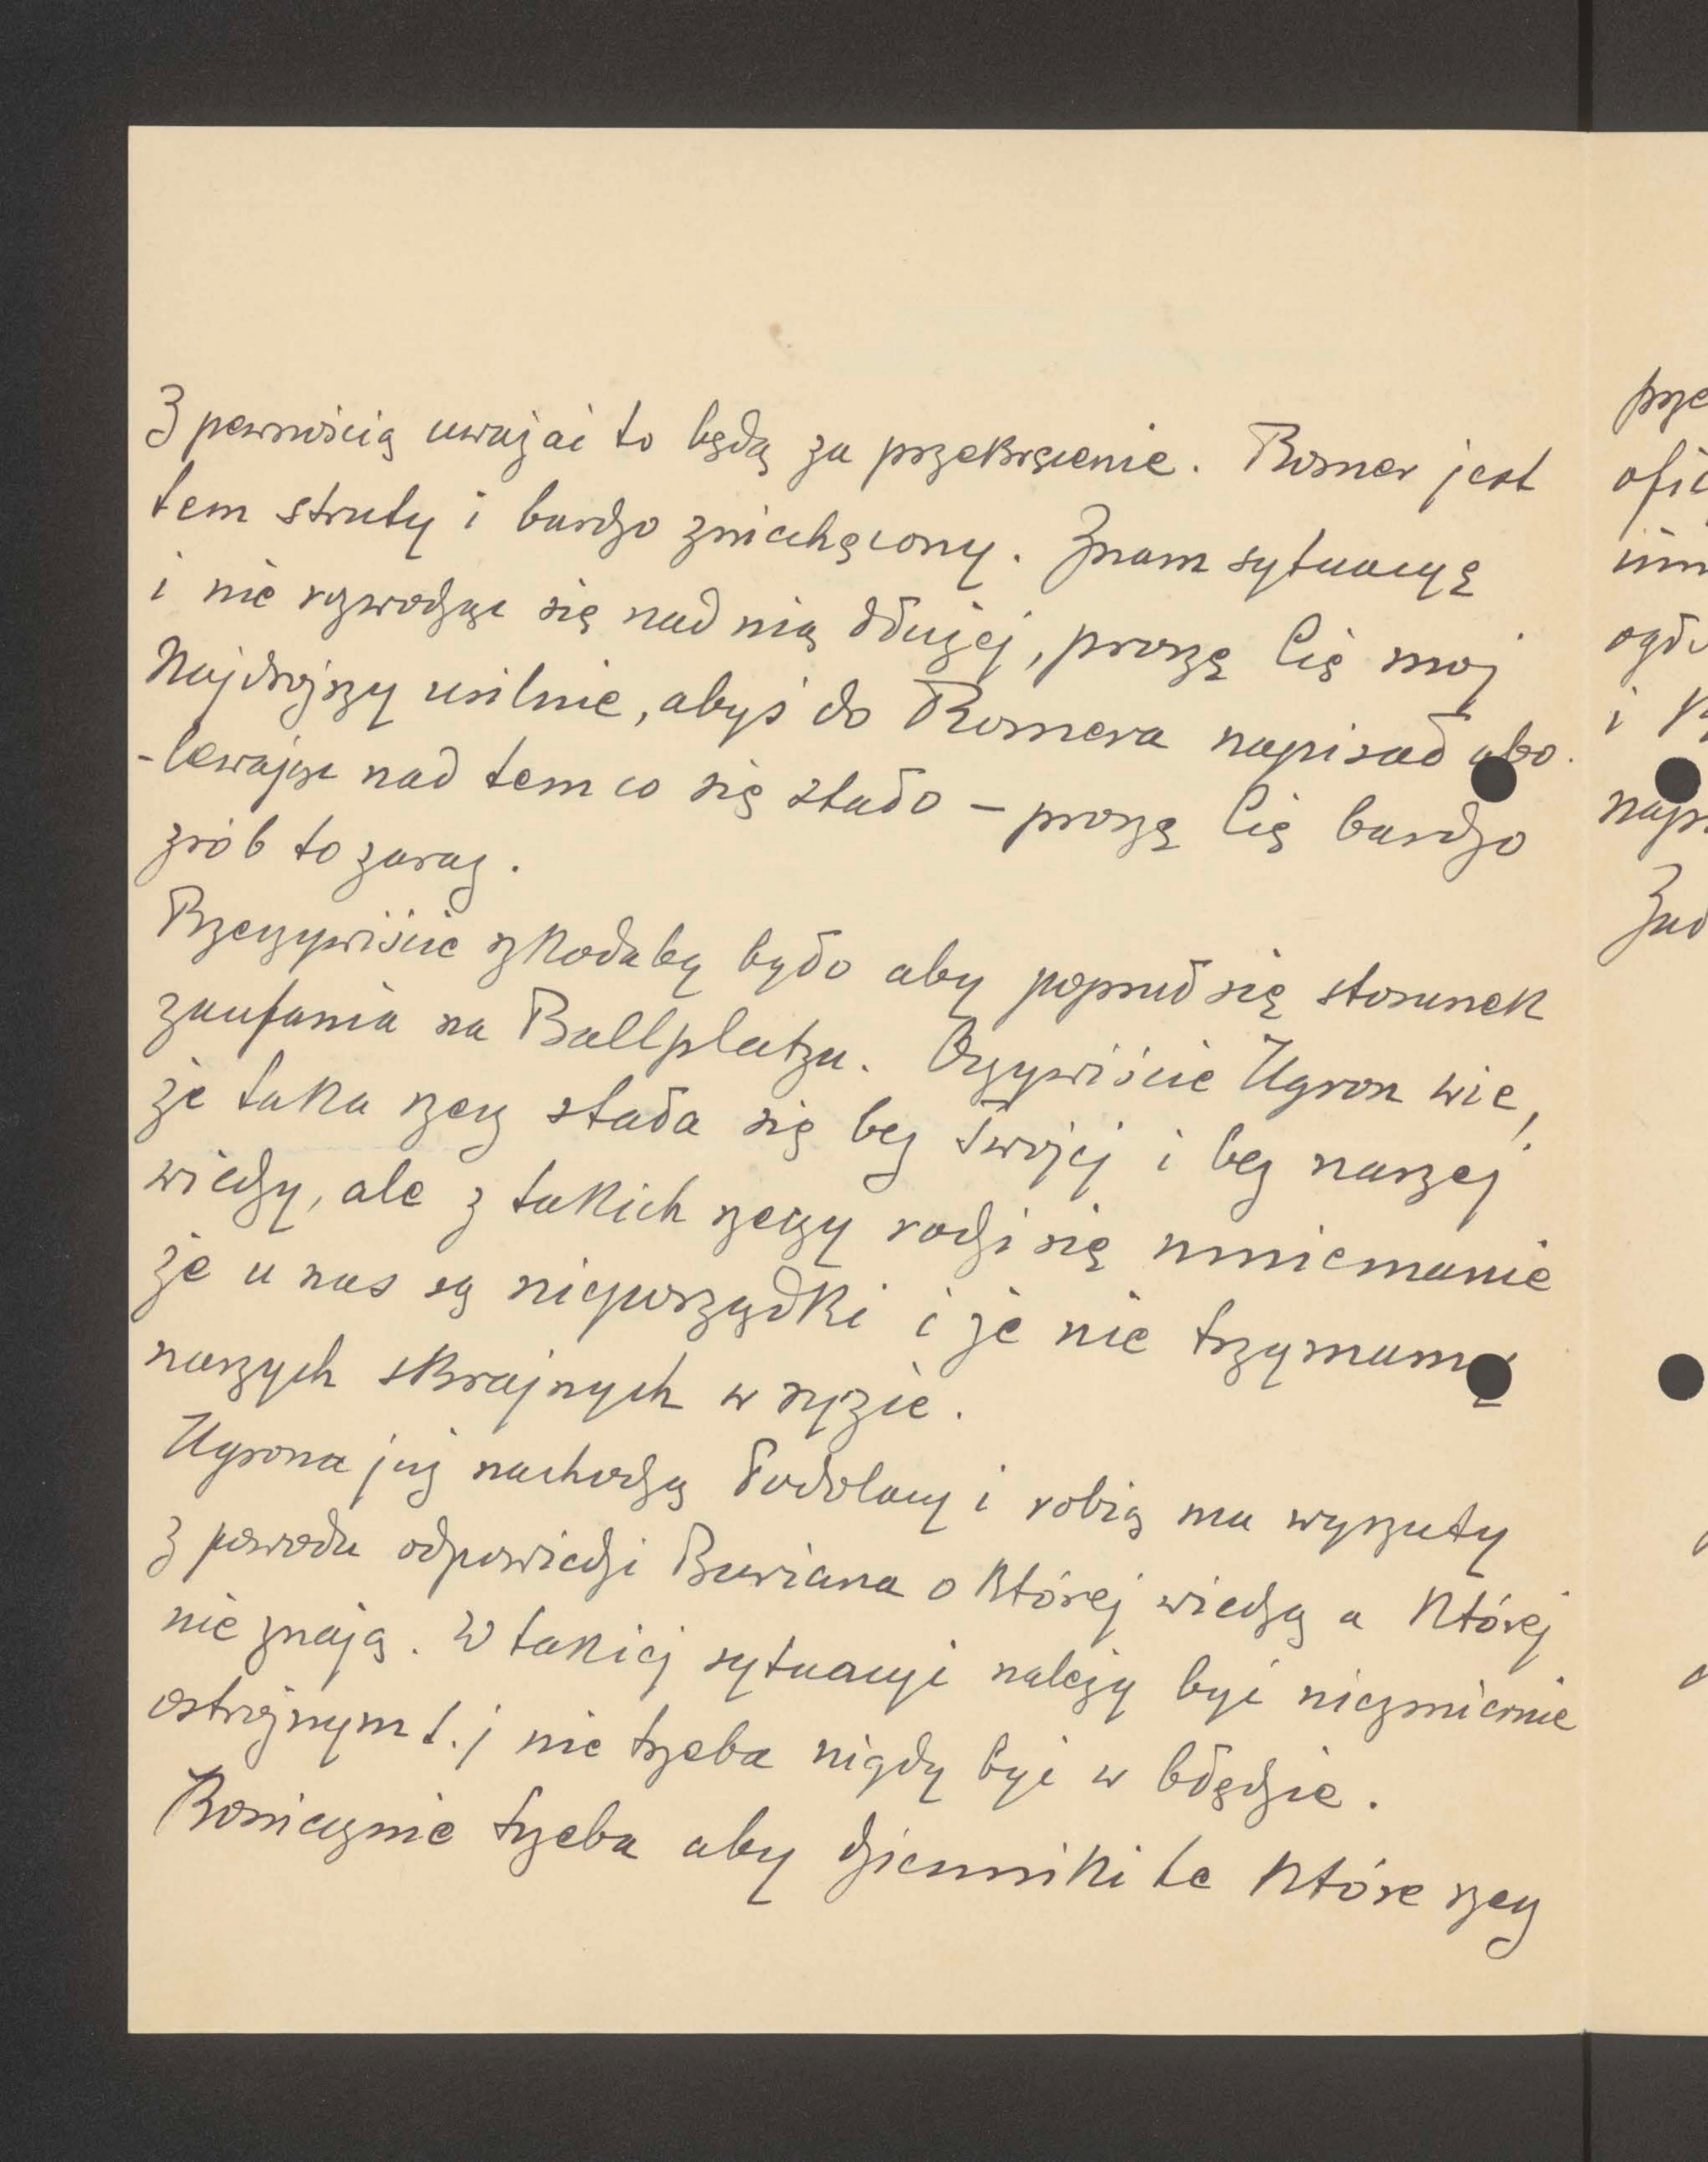 Z pewnością uważać to będą za przekręcenie. Rosner jest
tem struty i bardzo zniechęcony. Znam sytuacyę
i nie rozwodząc się nad nią dłużej, proszę Cię mój
Najdroższy usilnie, abyś do Rosnera napisał ubo-
-lewając nad tem co się stało – proszę Cię bardzo
zrób to zaraz.
Rzeczywiście szkodaby było aby popsuł się stosunek
zaufania na Ballplatzu. Oczywiście Ugron wie,
że taka rzecz stała się bez Twojej i bez naszej
wiedzy, ale z takich rzeczy rodzi się mniemanie
że u nas są nieporządki i że nie trzymamy
naszych skrajnych w ryzie.
Ugrona już nachodzą Podolacy i robią mu wyrzuty
z powodu odpowiedzi Buriana o której wiedzą a której
nie znają. W takiej sytuacyi należy być niezmiernie
ostrożnym t.j nie trzeba nigdy być w błędzie.
Koniecznie trzeba aby dzienniki te które rzecz